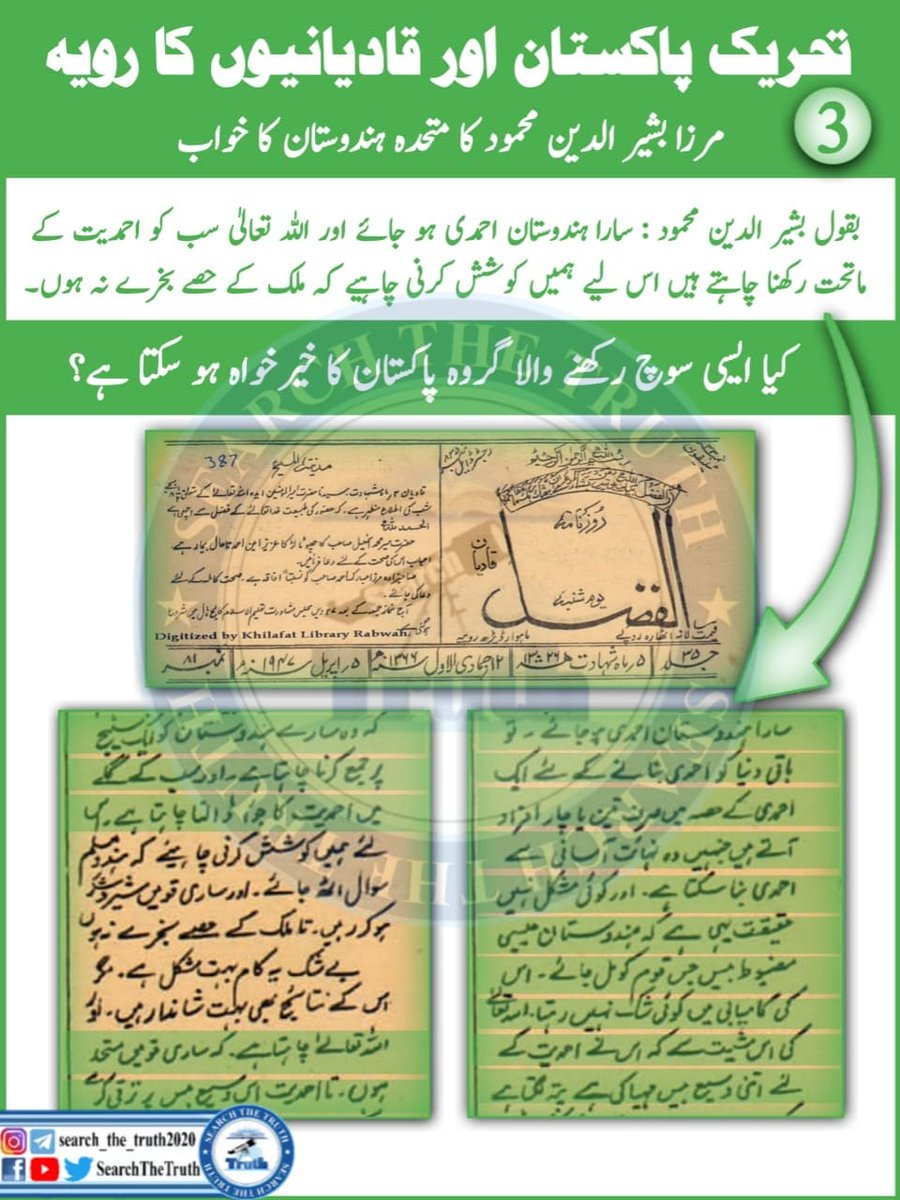 تحریک پاکستان اور قادیانیوں کا رویہ
3
مرزا بشیر الدین محمود کا متحدہ ہندوستان کا خواب
بقول بشیر الدین محمود : سارا ہندوستان احمدی ہو جائے اور اللہ تعالیٰ سب کو احمدیت کے
ماتحت رکھنا چاہتے ہیں اس لیے ہمیں کوشش کرنی چاہیے کہ ملک کے حصے بخرے نہ ہوں۔
کیا ایسی سوچ رکھنے والا گروہ پاکستان کا خیر خواہ ہو سکتا ہے؟
روزنامہ
الفضل
قادیان
یوم شنبہ
387
مدینۃ المسیح
الحمد للہ
Digitized by Khilafat Library Rabwah
جلد ۳۵ ۵ ماہ شہادت ۱۳۲۶ ۱۲ جمادی الاول ۱۳۶۶ ۵ اپریل ۱۹۴۷ نمبر ۸۱
سارا ہندوستان احمدی ہو جائے۔ تو
باقی دنیا کو احمدی بنانے کے لئے ایک
احمدی کے حصہ میں صرف تین یا چار افراد
آتے ہیں جنہیں وہ نہائت آسانی سے
احمدی بنا سکتا ہے۔ اور کوئی مشکل نہیں
حقیقت یہی ہے کہ ہندوستان جیسی
مضبوط بیس جس قوم کو مل جائے۔ اس
کی کامیابی میں کوئی شک نہیں رہتا۔ اللہ تعالیٰ
کی اس مشیت سے کہ اس نے احمدیت کے
لئے اتنی وسیع بیس مہیا کی ہے پتہ لگتا ہے
کہ وہ سارے ہندوستان کو ایک سٹیج
پر جمع کرنا چاہتا ہے۔ اور سب کے گلے
میں احمدیت کا جوا ڈالنا چاہتا ہے۔ اس
لئے ہمیں کوشش کرنی چاہیئے کہ ہندو مسلم
سوال اٹھ جائے۔ اور ساری قومیں شیر و شکر
ہو کر رہیں۔ تا ملک کے حصے بخرے نہ ہوں
بے شک یہ کام بہت مشکل ہے۔ مگر
اس کے نتائج بھی بہت شاندار ہیں۔ اور
اللہ تعالیٰ چاہتا ہے۔ کہ ساری قومیں متحد
ہوں۔ تا احمدیت اس وسیع بیس پر ترقی کرے
SEARCH THE TRUTH
search_the_truth2020
SearchTheTruth
SEARCH THE TRUTH
Truth
SEARCH THE TRUTH